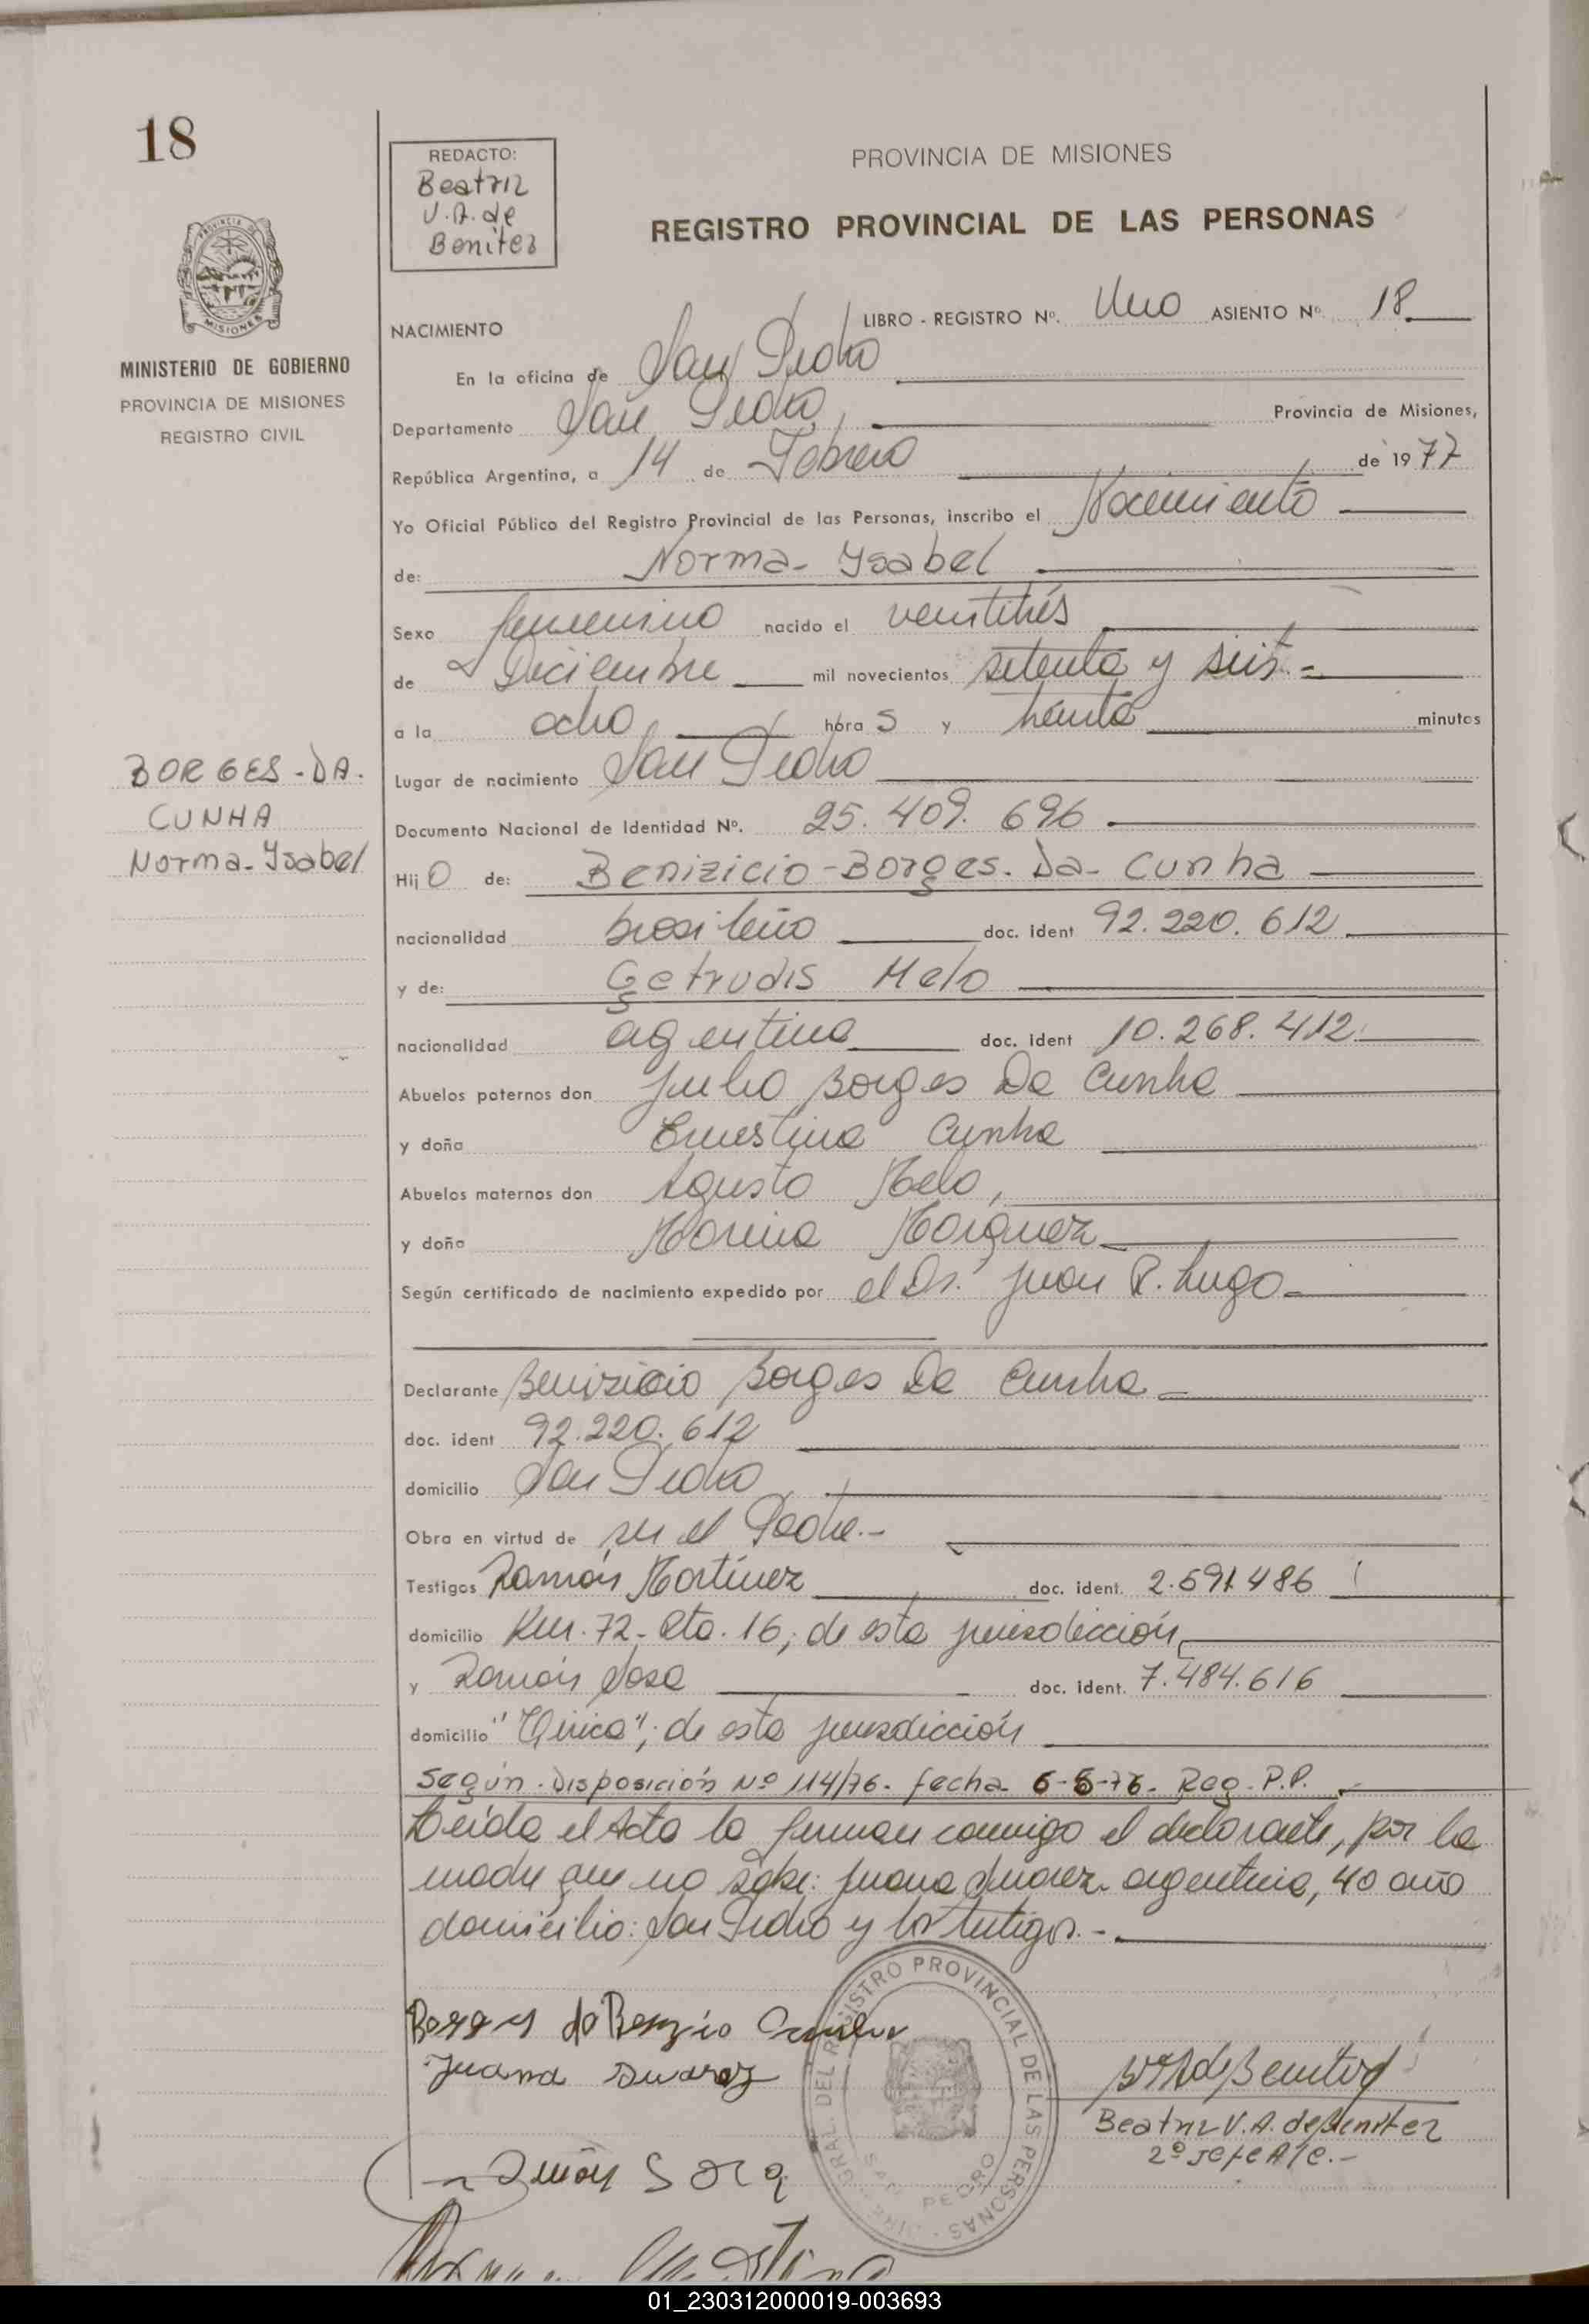 18
REDACTO:
Beatriz
V.A. de
Benitez
PROVINCIA DE MISIONES
REGISTRO PROVINCIAL DE LAS PERSONAS
MISIONES
MINISTERIO DE GOBIERNO
PROVINCIA DE MISIONES
REGISTRO CIVIL
NACIMIENTO
LIBRO - REGISTRO Nº. Uno ASIENTO Nº 18
En la oficina de San Pedro
Departamento San Pedro, Provincia de Misiones,
República Argentina, a 14 de Febrero de 1977
Yo Oficial Público del Registro Provincial de las Personas, inscribo el Nacimiento
de: Norma- Ysabel
Sexo femenino nacido el veintitrés
de Diciembre mil novecientos setenta y seis.=
a la ocho, hora s y treinta minutos
Lugar de nacimiento San Pedro
BORGES-DA.
CUNHA
Norma-Ysabel
Documento Nacional de Identidad Nº. 25.409.696
Hij o de: Benizicio-Borges. Da- Cunha
nacionalidad brasileño doc. ident 92.220.612
y de: Getrudis Melo
nacionalidad agentina doc. ident 10.268.412
Abuelos paternos don Julio Borges Da Cunha
y doña Ernestina Cunha
Abuelos maternos don Agusto Melo,
y doña Morena Marquez
Según certificado de nacimiento expedido por el Dr. Juan R. Lugo
Declarante Benizicio Borges Da Cunha
doc. ident 92.220.612
domicilio San Pedro
Obra en virtud de ser el Padre.-
Testigos Ramón Martínez doc. ident. 2.591.486
domicilio Km. 72- Rta. 16; de esta jurisdicción
y Ramón Sosa doc. ident. 7.484.616
domicilio de esta jurisdicción
Según. Disposición Nº 114/76- fecha 6-5-76- Reg. P.P.
Leída el Acta la firman conmigo el declarante, por la
madre que no sabe: Juana Suarez argentina, 40 año
domicilio: San Pedro y los testigos.-
Juana Suarez
DEL REGISTRO PROVINCIAL DE LAS PERSONAS
SAN PEDRO
Beatriz V.A. de Benitez
2º Jefe A/C.-
01_230312000019-003693